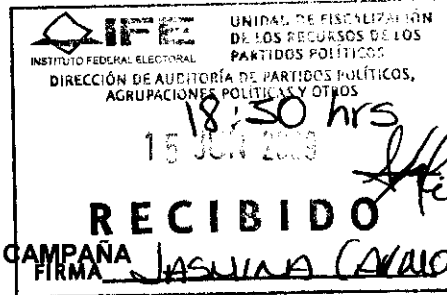 IFE
INSTITUTO FEDERAL ELECTORAL
UNIDAD DE FISCALIZACIÓN
DE LOS RECURSOS DE LOS
PARTIDOS POLÍTICOS
DIRECCIÓN DE AUDITORÍA DE PARTIDOS POLÍTICOS,
AGRUPACIONES POLÍTICAS Y OTROS
18:30 hrs
15 JUN
RECIBIDO
CAMPAÑA
FIRMA